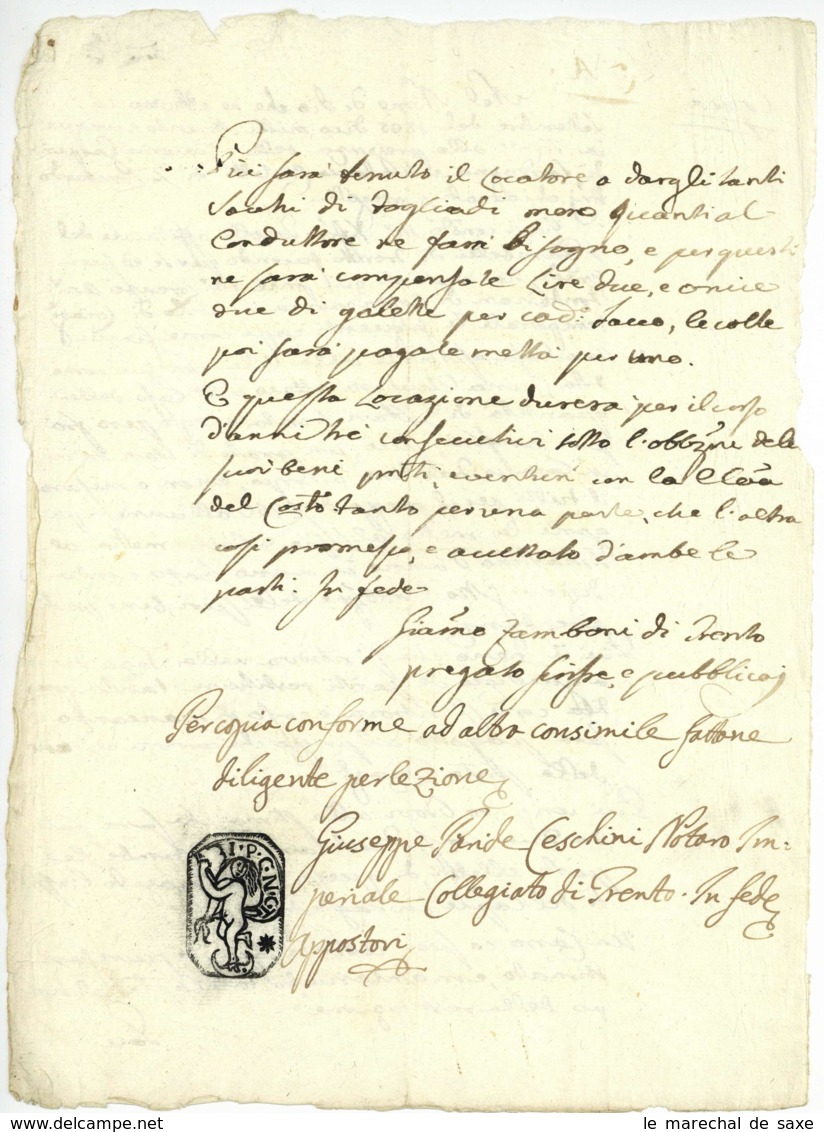 Più sarà tenuto il Locatore a dargli tanti
Sacchi di foglia di moro quanti al
Conduttore ne farà bisogno, e per questi
ne sarà compensate Lire due, e oncie
due di galette per cad: sacco, le colte
poi sarà pagate mettà per uno.
E questa Locazione durerà per il corso
d'anni trè consecutivi sotto l'obbne de le
suoi beni pnti, e venturi con la
del Costo tanto per una parte, che l'altra
così promesso, e accettato d'ambe le
parti. In fede
Giamo Zamboni di Trento
pregato scrisse, e pubblicai
Per copia conforme ad altra consimile fattane
diligente perlezione
Giuseppe Paride Ceschini Notaro Im-
periale Collegiato di Trento. In fede
apposi
I.P.C.N.C.
le marechal de saxe